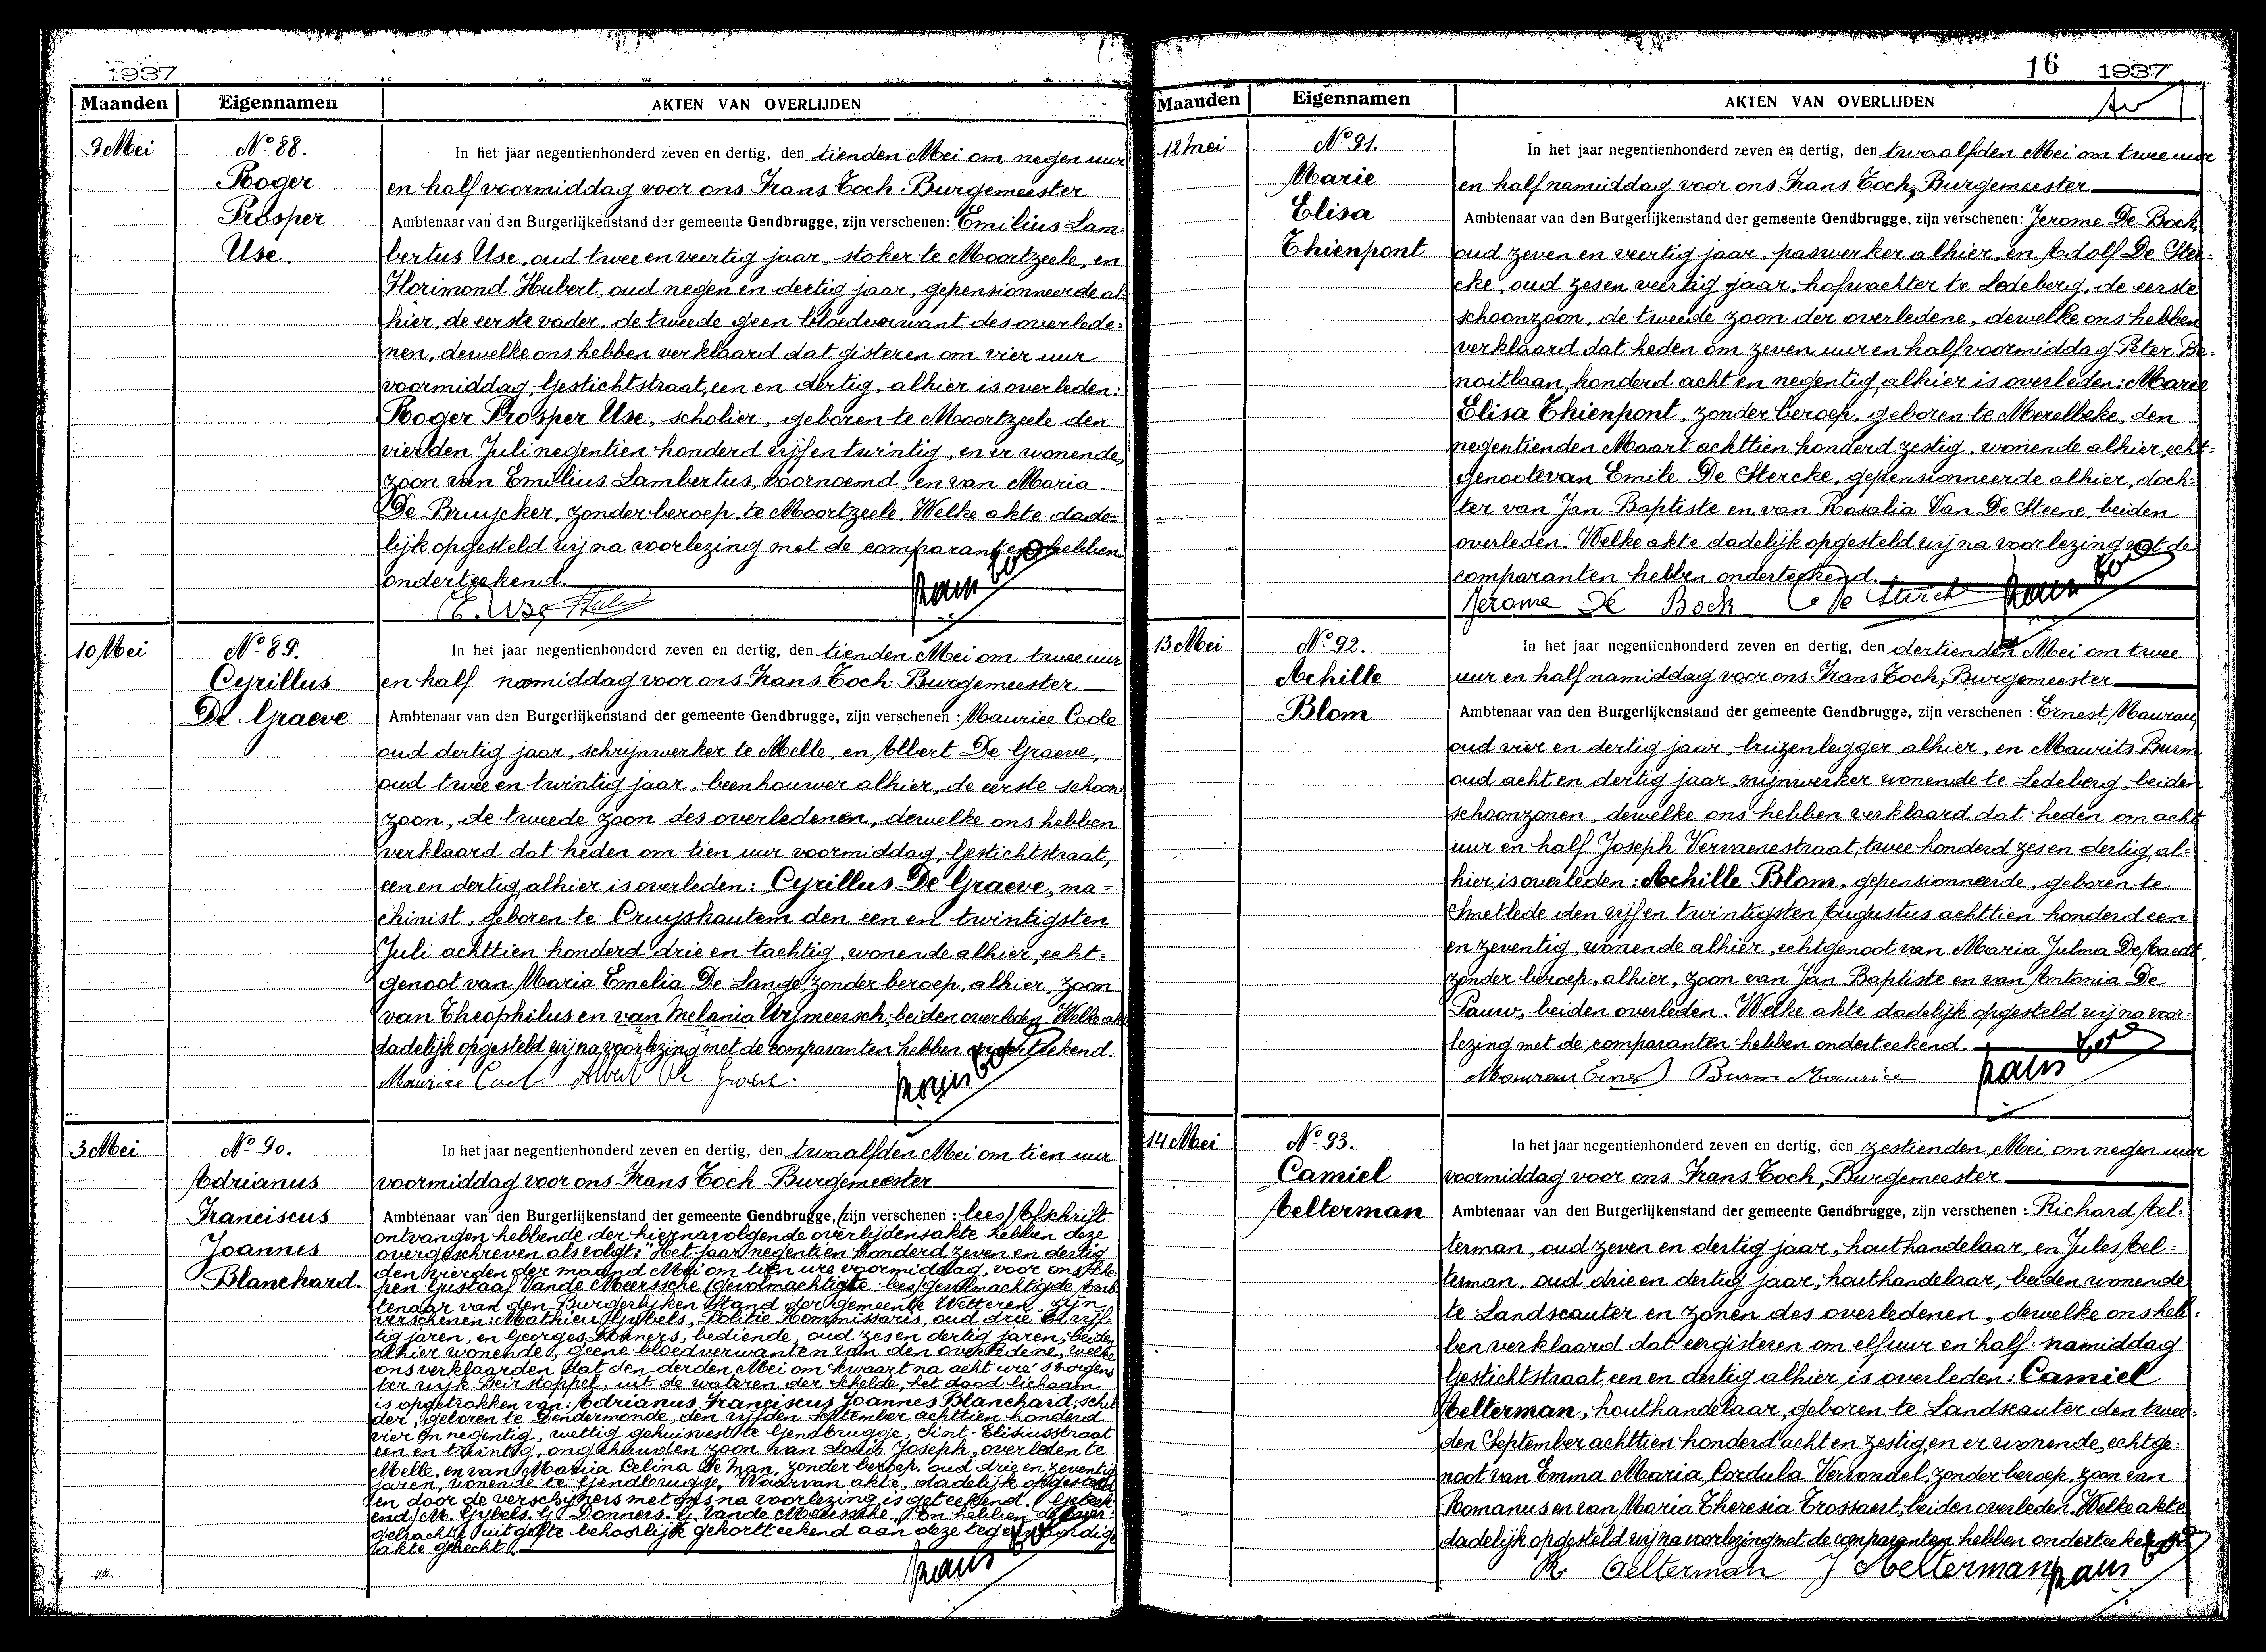 1937
Maanden Eigennamen AKTEN VAN OVERLIJDEN
9 Mei
No 88.
Roger
Prosper
Use.
In het jaar negentienhonderd zeven en dertig, den tienden Mei om negen uur
en half voormiddag voor ons Frans Toch Burgemeester
Ambtenaar van den Burgerlijkenstand der gemeente Gendbrugge, zijn verschenen: Emilius Lam=
bertus Use, oud twee en veertig jaar, stoker te Moortzeele, en
Florimond Hubert, oud negen en dertig jaar, gepensionneerde al
hier, de eerste vader, de tweede geen bloedverwant des overlede=
nen, dewelke ons hebben verklaard dat gisteren om vier uur
voormiddag, Gestichtstraat, een en dertig, alhier is overleden:
Roger Prosper Use, scholier, geboren te Moortzeele den
vierden Juli negentien honderd vijf en twintig, en er wonende,
zoon van Emilius Lambertus, voornoemd, en van Maria
De Bruycker, zonder beroep, te Moortzeele. Welke akte dade=
lijk opgesteld wij na voorlezing met de comparanten hebben
onderteekend.
E. Use
10 Mei
No 89.
Cyrillus
De Graeve
In het jaar negentienhonderd zeven en dertig, den tienden Mei om twee uur
en half namiddag voor ons Frans Toch Burgemeester
Ambtenaar van den Burgerlijkenstand der gemeente Gendbrugge, zijn verschenen: Maurice Cools
oud dertig jaar, schrijnwerker te Melle, en Albert De Graeve,
oud twee en twintig jaar, beenhouwer alhier, de eerste schoon=
zoon, de tweede zoon des overledenen, dewelke ons hebben
verklaard dat heden om tien uur voormiddag, Gestichtstraat,
een en dertig, alhier is overleden: Cyrillus De Graeve, ma=
chinist, geboren te Cruyshautem den een en twintigsten
Juli achttien honderd drie en tachtig, wonende alhier, echt=
genoot van Maria Emelia De Lange, zonder beroep, alhier, zoon
van Theophilus en van Melania Wymeersch, beiden overleden. Welke akte
dadelijk opgesteld wij na voorlezing met de comparanten hebben onderteekend.
Maurice Albert De Graeve
3 Mei
No 90.
Adrianus
Franciscus
Joannes
Blanchard.
In het jaar negentienhonderd zeven en dertig, den twaalfden Mei om tien uur
voormiddag voor ons Frans Toch Burgemeester
Ambtenaar van den Burgerlijkenstand der gemeente Gendbrugge, (zijn verschenen: lees) Afschrift
ontvangen hebbende der hiernavolgende overlijdensakte hebben deze
overgeschreven als volgt: "Het jaar negentien honderd zeven en dertig
den vierden der maand Mei om tien ure voormiddag, voor ons Sche=
pen Gustaaf Vande Meerssche (gevolmachtigte: lees) gevolmachtigde Amb
tenaar van den Burgerlijken Stand der gemeente Wetteren, zijn
verschenen: Mathieu Gybels, Politie Kommissaris, oud drie en vijf=
tig jaren, en Georges Donners, bediende, oud zes en dertig jaren, beiden
alhier wonende, geene bloedverwanten van den overledene, welke
ons verklaarden dat den derden Mei om kwaart na acht ure 's morgens
ter wijk Beirstoppel, uit de wateren der Schelde, het dood lichaam
is opgetrokken van: Adrianus Franciscus Joannes Blanchard, schil=
der, geboren te Dendermonde, den vijfden September achttien honderd
vier en negentig, wettig gehuisvest te Gendbrugge, Sint-Elisiusstraat
een en twintig, ongehuwden zoon van Louis Joseph, overleden te
Melle, en van Maria Celina De Man, zonder beroep, oud drie en zeventig
jaren, wonende te Gendbrugge. Waarvan akte, dadelijk opgesteld
en door de verschijners met ons na voorlezing is geteekend. (Geteek
end) M. Gybels. G. Donners. G. Vande Meerssche." En hebben de over=
gebrachte uitgifte behoorlijk gekortteekend aan deze tegenwoordige
akte gehecht.
16 1937
Maanden Eigennamen AKTEN VAN OVERLIJDEN
12 Mei
No 91.
Marie
Elisa
Thienpont
In het jaar negentienhonderd zeven en dertig, den twaalfden Mei om twee uur
en half namiddag voor ons Frans Toch, Burgemeester
Ambtenaar van den Burgerlijkenstand der gemeente Gendbrugge, zijn verschenen: Jerome De Bock,
oud zeven en veertig jaar, paswerker alhier, en Adolf De Ster=
cke, oud zes en veertig jaar, hofwachter te Ledeberg, de eerste
schoonzoon, de tweede zoon der overledene, dewelke ons hebben
verklaard dat heden om zeven uur en half voormiddag Peter Be=
noitlaan, honderd acht en negentig, alhier is overleden: Marie
Elisa Thienpont, zonder beroep, geboren te Merelbeke, den
negentienden Maart achttien honderd zestig, wonende alhier, echt=
genoote van Emile De Stercke, gepensionneerde alhier, doch=
ter van Jan Baptiste en van Rosalia Van De Steene, beiden
overleden. Welke akte dadelijk opgesteld wij na voorlezing met de
comparanten hebben onderteekend.
Jerome De Bock
13 Mei
No 92.
Achille
Blom
In het jaar negentienhonderd zeven en dertig, den dertienden Mei om twee
uur en half namiddag voor ons Frans Toch, Burgemeester
Ambtenaar van den Burgerlijkenstand der gemeente Gendbrugge, zijn verschenen: Ernest Maurau,
oud vier en dertig jaar, buizenlegger alhier, en Maurits Burm
oud acht en dertig jaar, mijnwerker wonende te Ledeberg, beiden
schoonzonen, dewelke ons hebben verklaard dat heden om acht
uur en half Joseph Vervaenestraat, twee honderd zes en dertig, al=
hier is overleden: Achille Blom, gepensionneerde, geboren te
Smetlede den vijf en twintigsten Augustus achttien honderd een
en zeventig, wonende alhier, echtgenoot van Maria Julma De Baedt,
zonder beroep, alhier, zoon van Jan Baptiste en van Antonia De
Pauw, beiden overleden. Welke akte dadelijk opgesteld wij na voor=
lezing met de comparanten hebben onderteekend.
Burm Maurice
14 Mei
No 93.
Camiel
Aelterman
In het jaar negentienhonderd zeven en dertig, den zestienden Mei om negen uur
voormiddag voor ons Frans Toch, Burgemeester
Ambtenaar van den Burgerlijkenstand der gemeente Gendbrugge, zijn verschenen: Richard Ael=
terman, oud zeven en dertig jaar, houthandelaar, en Jules Ael=
terman, oud drie en dertig jaar, houthandelaar, beiden wonende
te Landscauter en zonen des overledenen, dewelke ons heb=
ben verklaard dat eergisteren om elf uur en half namiddag
Gestichtstraat, een en dertig alhier is overleden: Camiel
Aelterman, houthandelaar, geboren te Landscauter den twee=
den September achttien honderd acht en zestig, en er wonende, echtge=
noot van Emma Maria Cordula Vervondel, zonder beroep, zoon van
Romanus en van Maria Theresia Trossaert, beiden overleden. Welke akte
dadelijk opgesteld wij na voorlezing met de comparanten hebben onderteekend.
R. Aelterman J Aelterman